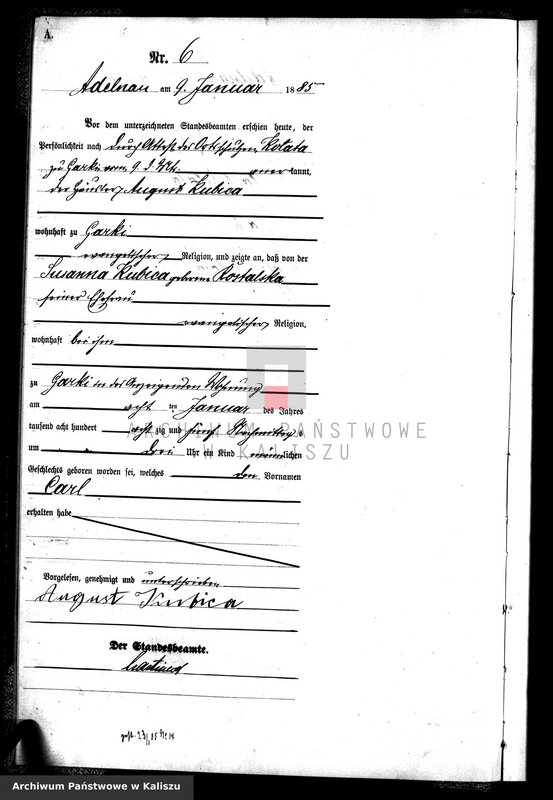 A.
Nr. 6
Adelnau am 9. Januar 1885
Vor dem unterzeichneten Standesbeamten erschien heute, der
Persönlichkeit nach durch Attest des Ortsschulzen Kolata
zu Garki vom 9. d. Mts. aner kannt,
der Häusler August Kubica
wohnhaft zu Garki
evangelischer Religion, und zeigte an, daß von der
Susanna Kubica geborene Rostalska
seiner Ehefrau
evangelischer Religion,
wohnhaft bei ihm
zu Garki in des Anzeigenden Wohnung
am acht ten Januar des Jahres
tausend acht hundert acht zig und fünf Nachmittag s
um drei Uhr ein Kind männlichen
Geschlechts geboren worden sei, welches den Vornamen
Carl
erhalten habe
Vorgelesen, genehmigt und unterschrieben
August Kubica
Der Standesbeamte.
ARCHIWUM PAŃSTWOWE
W KALISZU
Archiwum Państwowe w Kaliszu